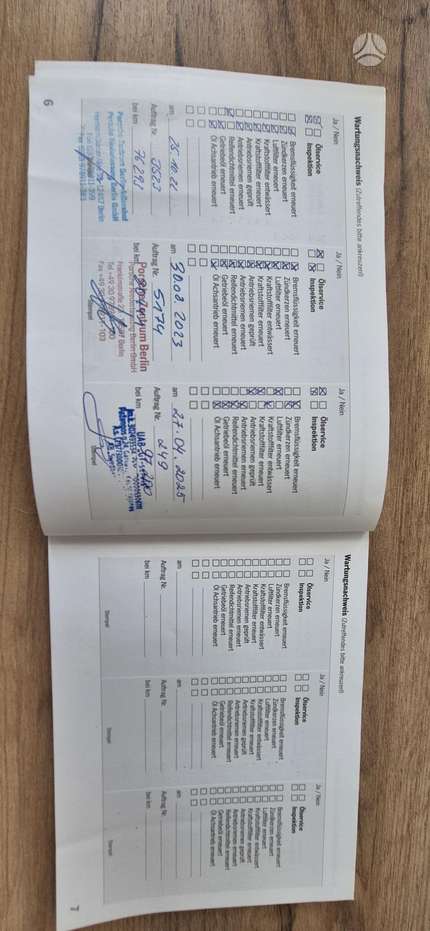 Wartungsnachweis (Zutreffendes bitte ankreuzen)
Ja / Nein
Ölservice
Inspektion
Bremsflüssigkeit erneuert
Zündkerzen erneuert
Luftfilter erneuert
Kraftstofffilter entwässert
Kraftstofffilter erneuert
Antriebsriemen geprüft
Antriebsriemen erneuert
Reifendichtmittel erneuert
Getriebeöl erneuert
Öl Achsantrieb erneuert
am 25.10.22
Auftrag Nr.
bei km
Ja / Nein
Ölservice
Inspektion
Bremsflüssigkeit erneuert
Zündkerzen erneuert
Luftfilter erneuert
Kraftstofffilter entwässert
Kraftstofffilter erneuert
Antriebsriemen geprüft
Antriebsriemen erneuert
Reifendichtmittel erneuert
Getriebeöl erneuert
Öl Achsantrieb erneuert
am 30.08.2023
Auftrag Nr. 5174
bei km
Berlin
Stempel
Ja / Nein
Ölservice
Inspektion
Bremsflüssigkeit erneuert
Zündkerzen erneuert
Luftfilter erneuert
Kraftstofffilter entwässert
Kraftstofffilter erneuert
Antriebsriemen geprüft
Antriebsriemen erneuert
Reifendichtmittel erneuert
Getriebeöl erneuert
Öl Achsantrieb erneuert
am 27.04.2025
Auftrag Nr. 249
bei km
UAB
Stempel
6
Wartungsnachweis (Zutreffendes bitte ankreuzen)
Ja / Nein
Ölservice
Inspektion
Bremsflüssigkeit erneuert
Zündkerzen erneuert
Luftfilter erneuert
Kraftstofffilter entwässert
Kraftstofffilter erneuert
Antriebsriemen geprüft
Antriebsriemen erneuert
Reifendichtmittel erneuert
Getriebeöl erneuert
Öl Achsantrieb erneuert
am
Auftrag Nr.
bei km
Stempel
Ja / Nein
Ölservice
Inspektion
Bremsflüssigkeit erneuert
Zündkerzen erneuert
Luftfilter erneuert
Kraftstofffilter entwässert
Kraftstofffilter erneuert
Antriebsriemen geprüft
Antriebsriemen erneuert
Reifendichtmittel erneuert
Getriebeöl erneuert
Öl Achsantrieb erneuert
am
Auftrag Nr.
bei km
Stempel
Ja / Nein
Ölservice
Inspektion
Bremsflüssigkeit erneuert
Zündkerzen erneuert
Luftfilter erneuert
Kraftstofffilter entwässert
Kraftstofffilter erneuert
Antriebsriemen geprüft
Antriebsriemen erneuert
Reifendichtmittel erneuert
Getriebeöl erneuert
Öl Achsantrieb erneuert
am
Auftrag Nr.
bei km
Stempel
7